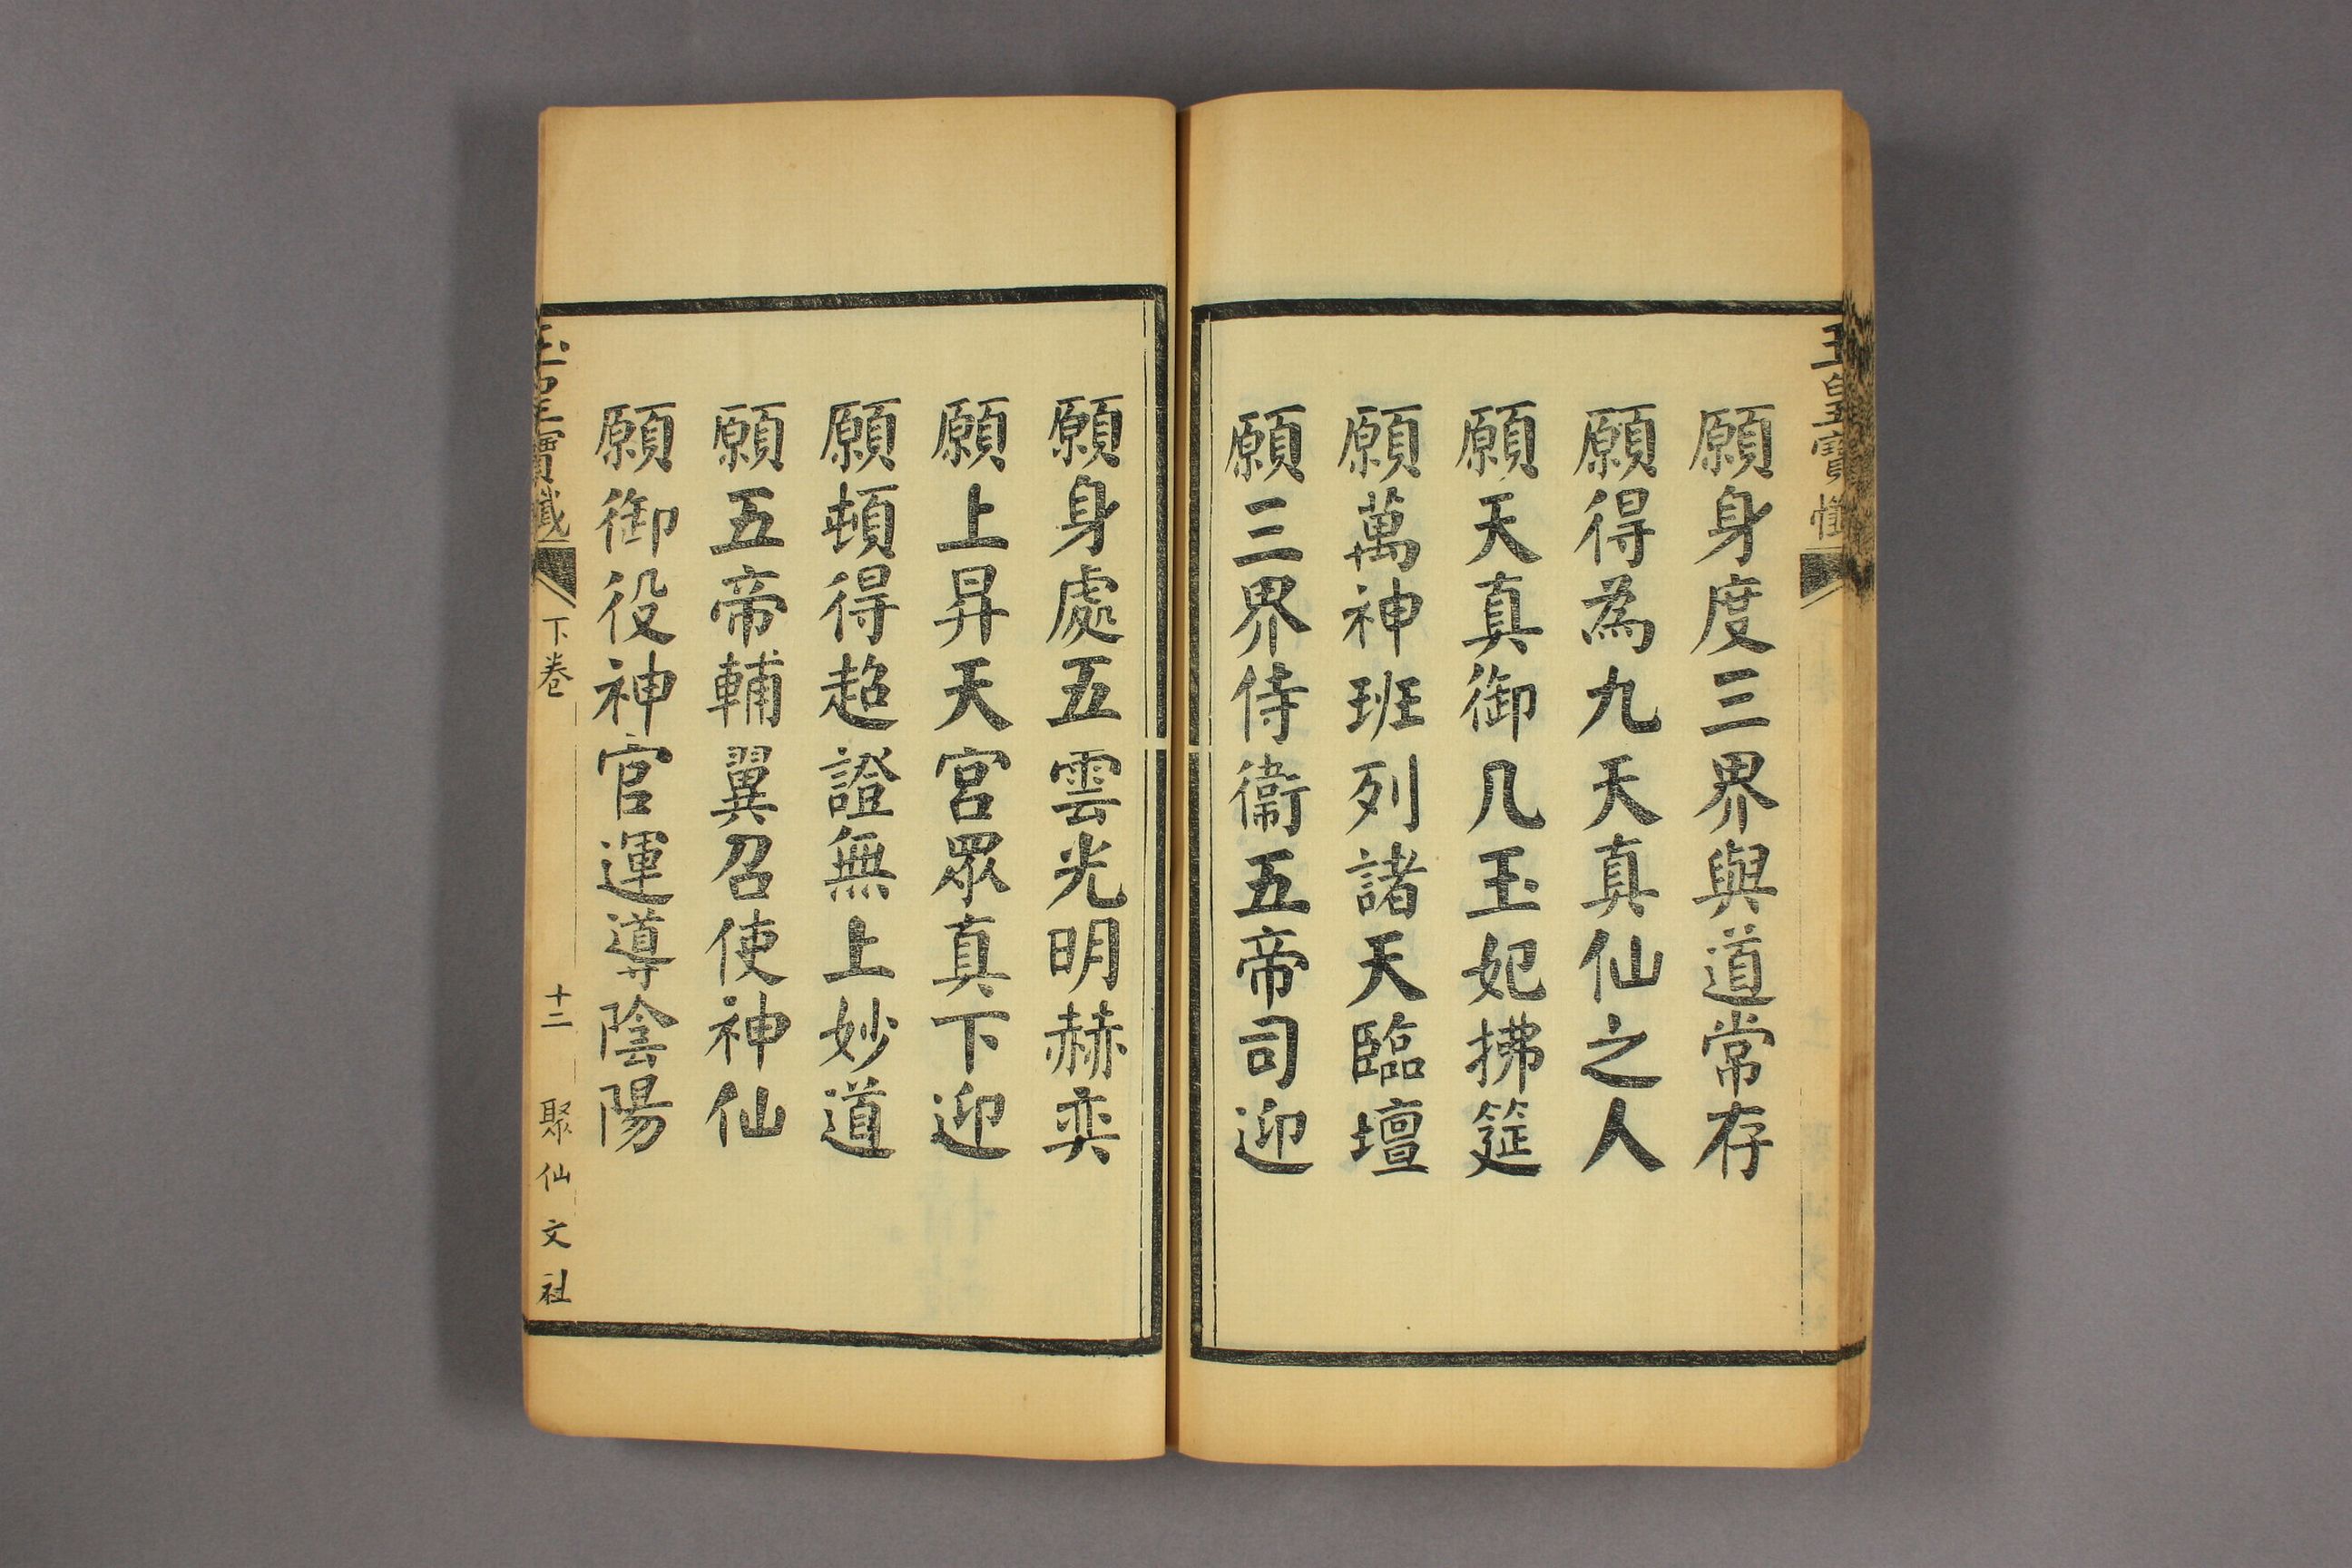 玉皇寶懺
願身度三界與道常存
願得為九天真仙之人
願天真御几玉妃拂筵
願萬神班列諸天臨壇
願三界侍衞五帝司迎
願身處五雲光明赫奕
願上昇天宮眾真下迎
願頓得超證無上妙道
願五帝輔翼召使神仙
願御役神官運導陰陽
玉皇寶懺 下卷 十二 聚仙文社